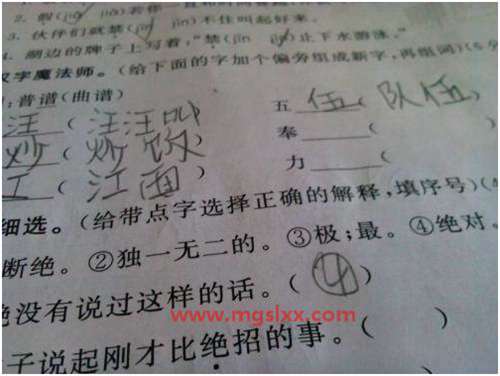 2. 假(jiǎ jià)若你一直和时间
3. 伙伴们就禁(jīn jìn)不住叫起好来。
4. 湖边的牌子上写着,"禁(jīn jìn)止下水游泳。"
汉字魔法师。(给下面的字加个偏旁组成新字,再组词)(6分
:普谱(曲谱)
汪(汪汪叫
五 伍(队伍)
炒(炒饭
奉 (
工(江面)
力 (
细选。(给带点字选择正确的解释,填序号)(4
断绝。②独一无二的。③极;最。④绝对。
绝没有说过这样的话。(④)
www.mgslxx.com
子说起刚才比绝招的事。( )